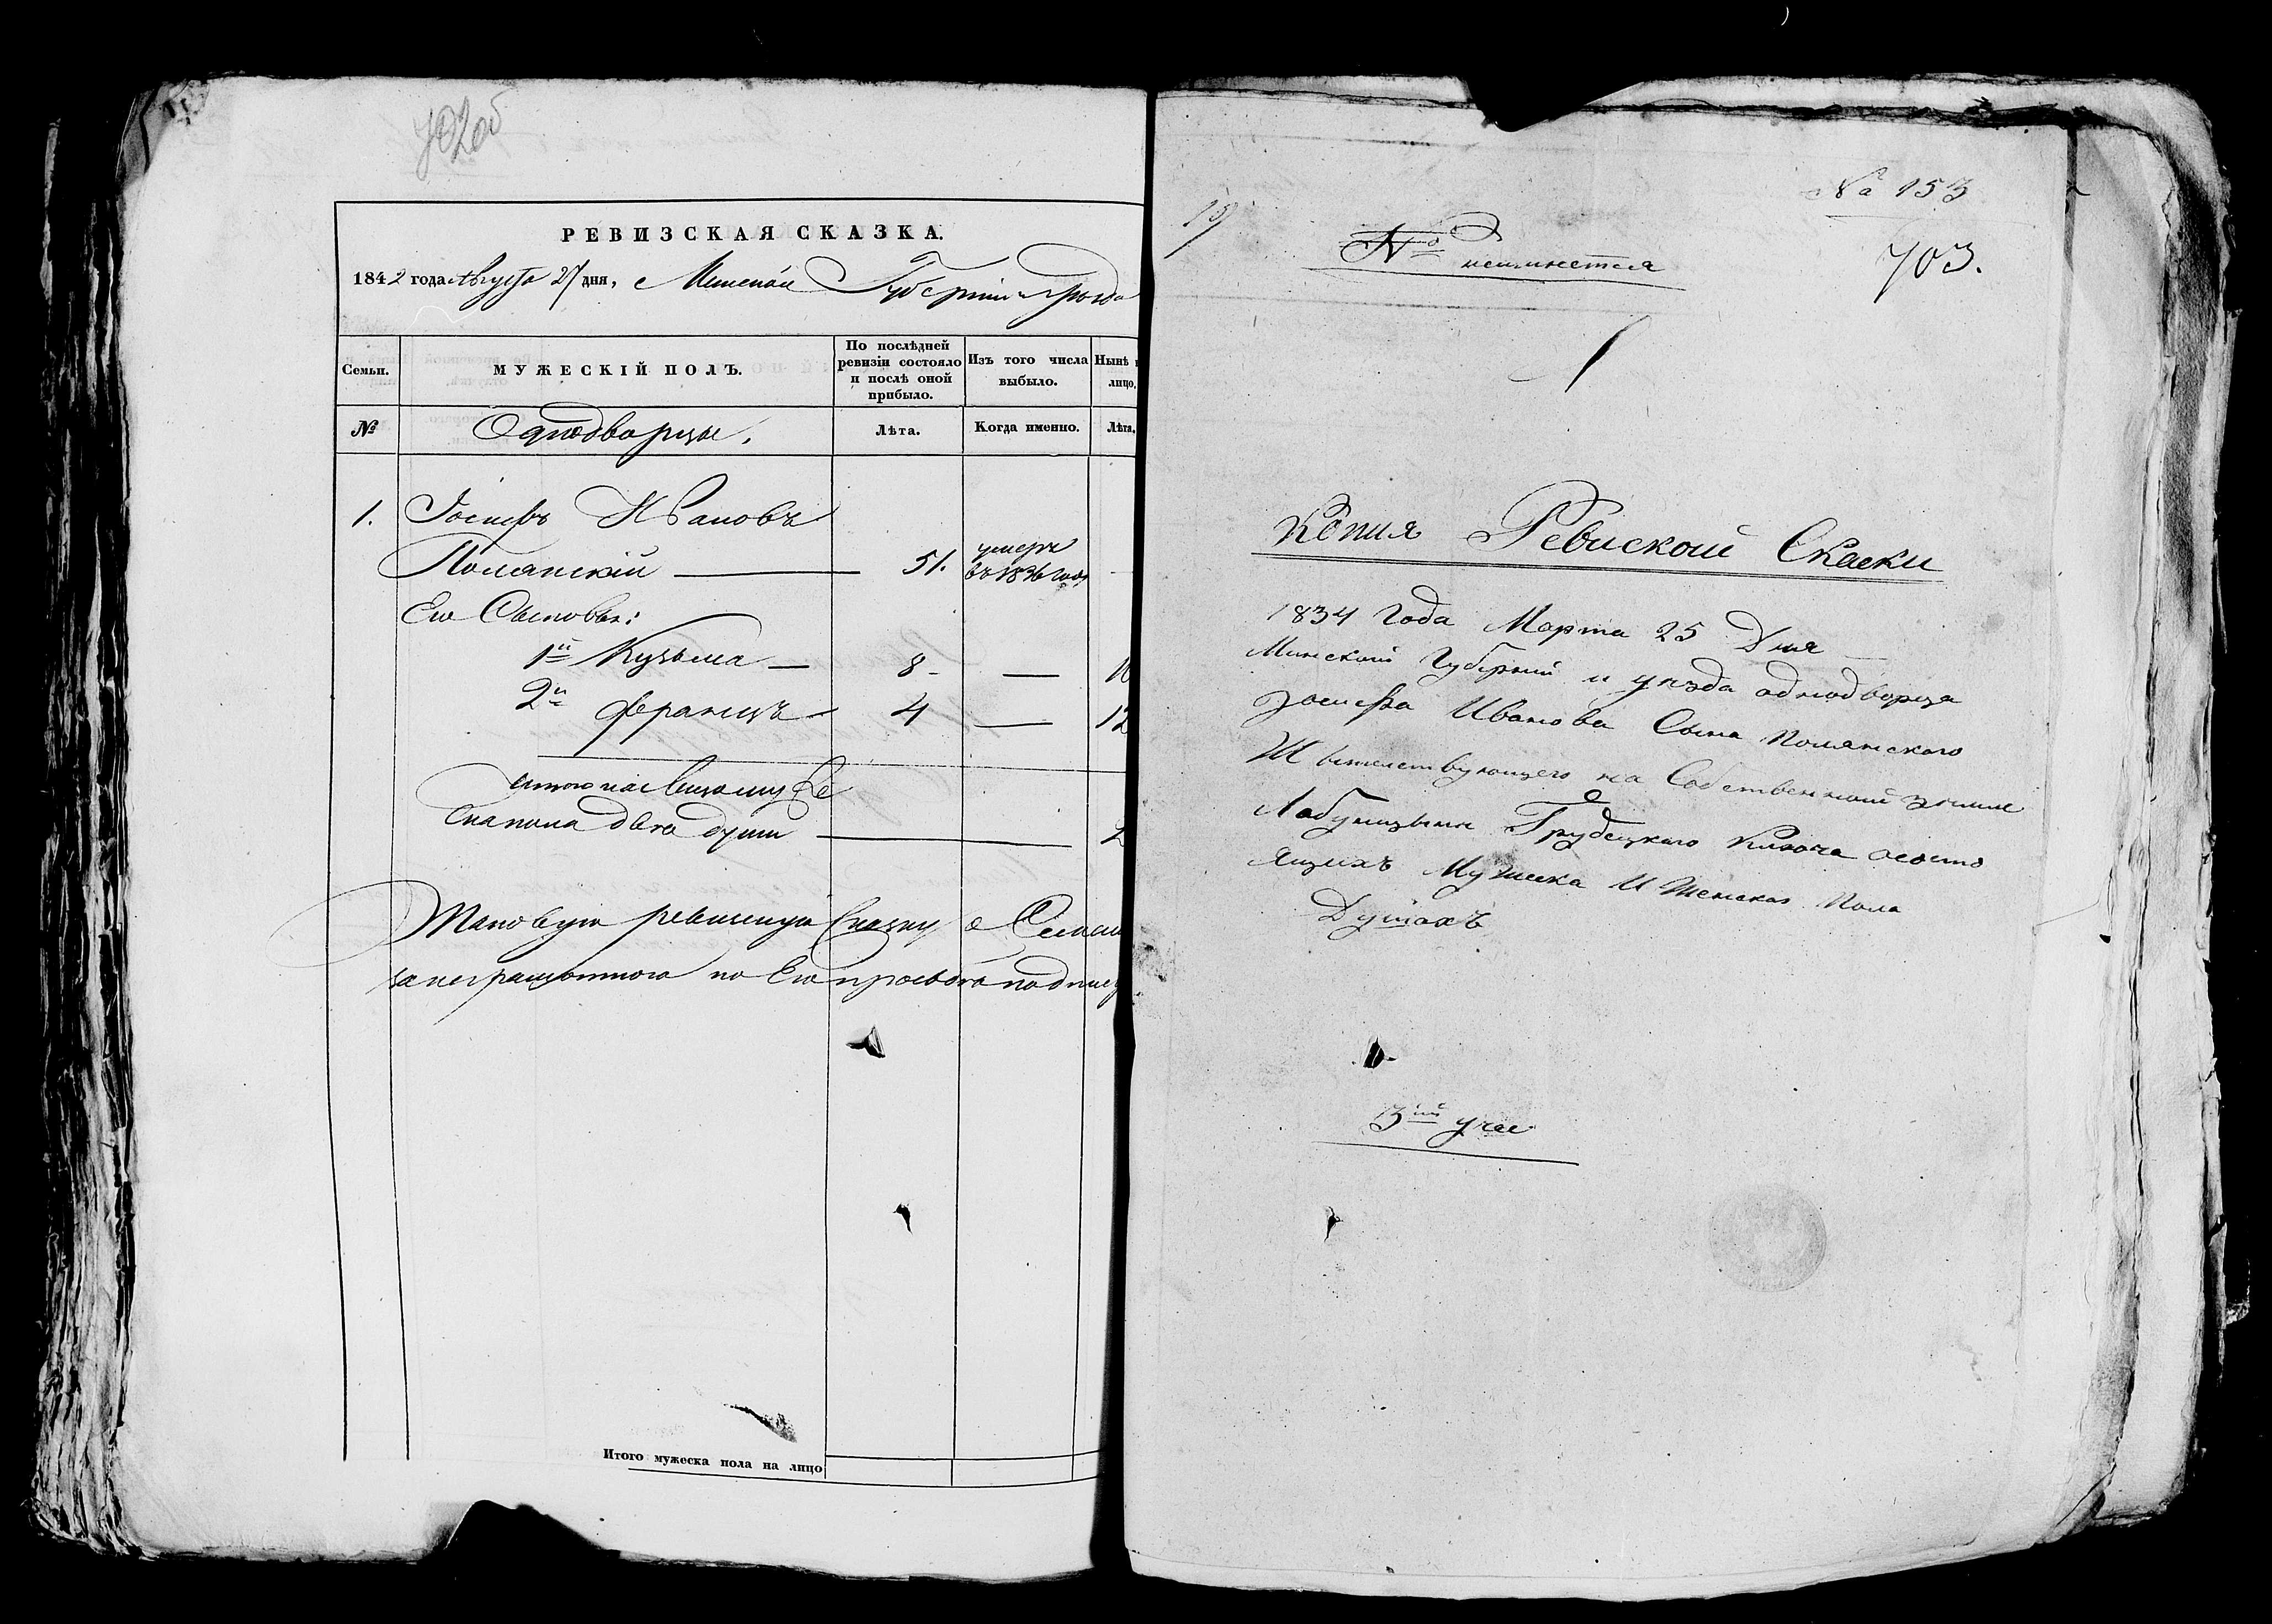 702об
РЕВИЗСКАЯ СКАЗКА.
1842 года Августа 27 дня, с Минской Губерніи и уезда
Семьи.
МУЖЕСКІЙ ПОЛЪ.
По послѣдней ревизіи состояло и послѣ оной прибыло.
Изъ того числа выбыло.
Нынѣ
лицо,
№
Однодворцы.
Лѣта.
Когда именно.
Лѣта,
1. Іосифъ Ивановъ
Полянскій — 51. умеръ въ 1836 году
Его Сыновья:
1й Кузьма — 8 — 16
2й Францъ — 4 — 12
Итого налицо мужеска пола два души — 2
Таковую ревизкую Сказку
за неграмотного по Его прозьбе подписа
Итого мужеска пола на лицо
№ 153
703.
157
№ неимеетея
1
Копия Ревиской Скаски
1834 года Марта 25 Дня
Минской Губерний и уезда однодворца
Іосифа Иванова Сына Полянского
Жытелствующего на Собственной земле
Грубецкаго Ключа ососто
ящихъ Мужеска И Женскаго Пола
Душахъ
3ий учас